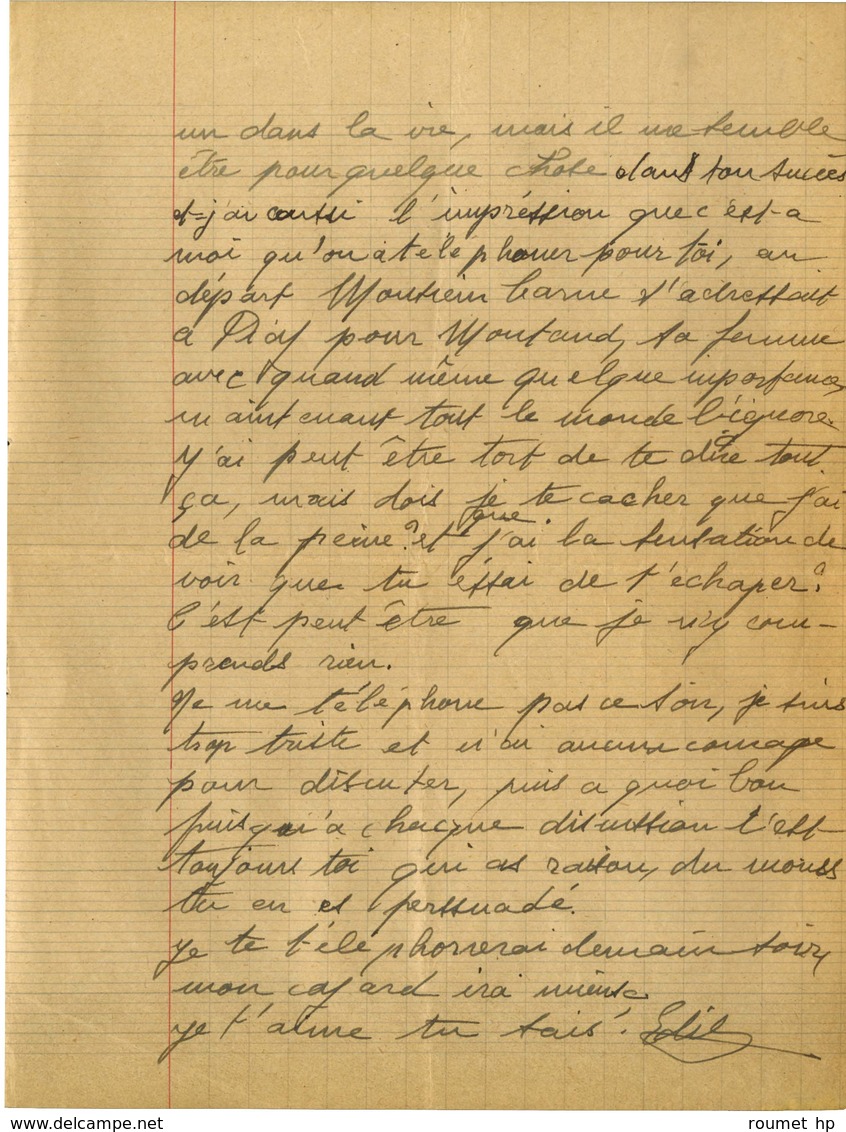 un dans la vie, mais il me semble
être pour quelque chose dans ton succès
et j'ai aussi l'impréssion que c'est a
moi qu'on a téléphoner pour toi, au
départ Monsieur Carne s'adressait
a Piaf pour Montand, sa femme
avec quand même quelque importance,
maintenant tout le monde l'ignore.
J'ai peut être tort de te dire tout
ça, mais dois je te cacher que j'ai
de la peine? et que j'ai la sensation de
voir que tu éssai de t'échaper?
C'est peut être que je n'y com-
prends rien.
Ne me téléphone pas ce soir, je suis
trop triste et n'ai aucun courage
pour discuter, puis a quoi bon
puisqu'a chaque discussion c'est
toujours toi qui as raison, du moins
tu en es perssuadé.
Je te téléphonerai demain soir,
mon cafard ira mieux
Je t'aime tu sais! Edit
roumet hp